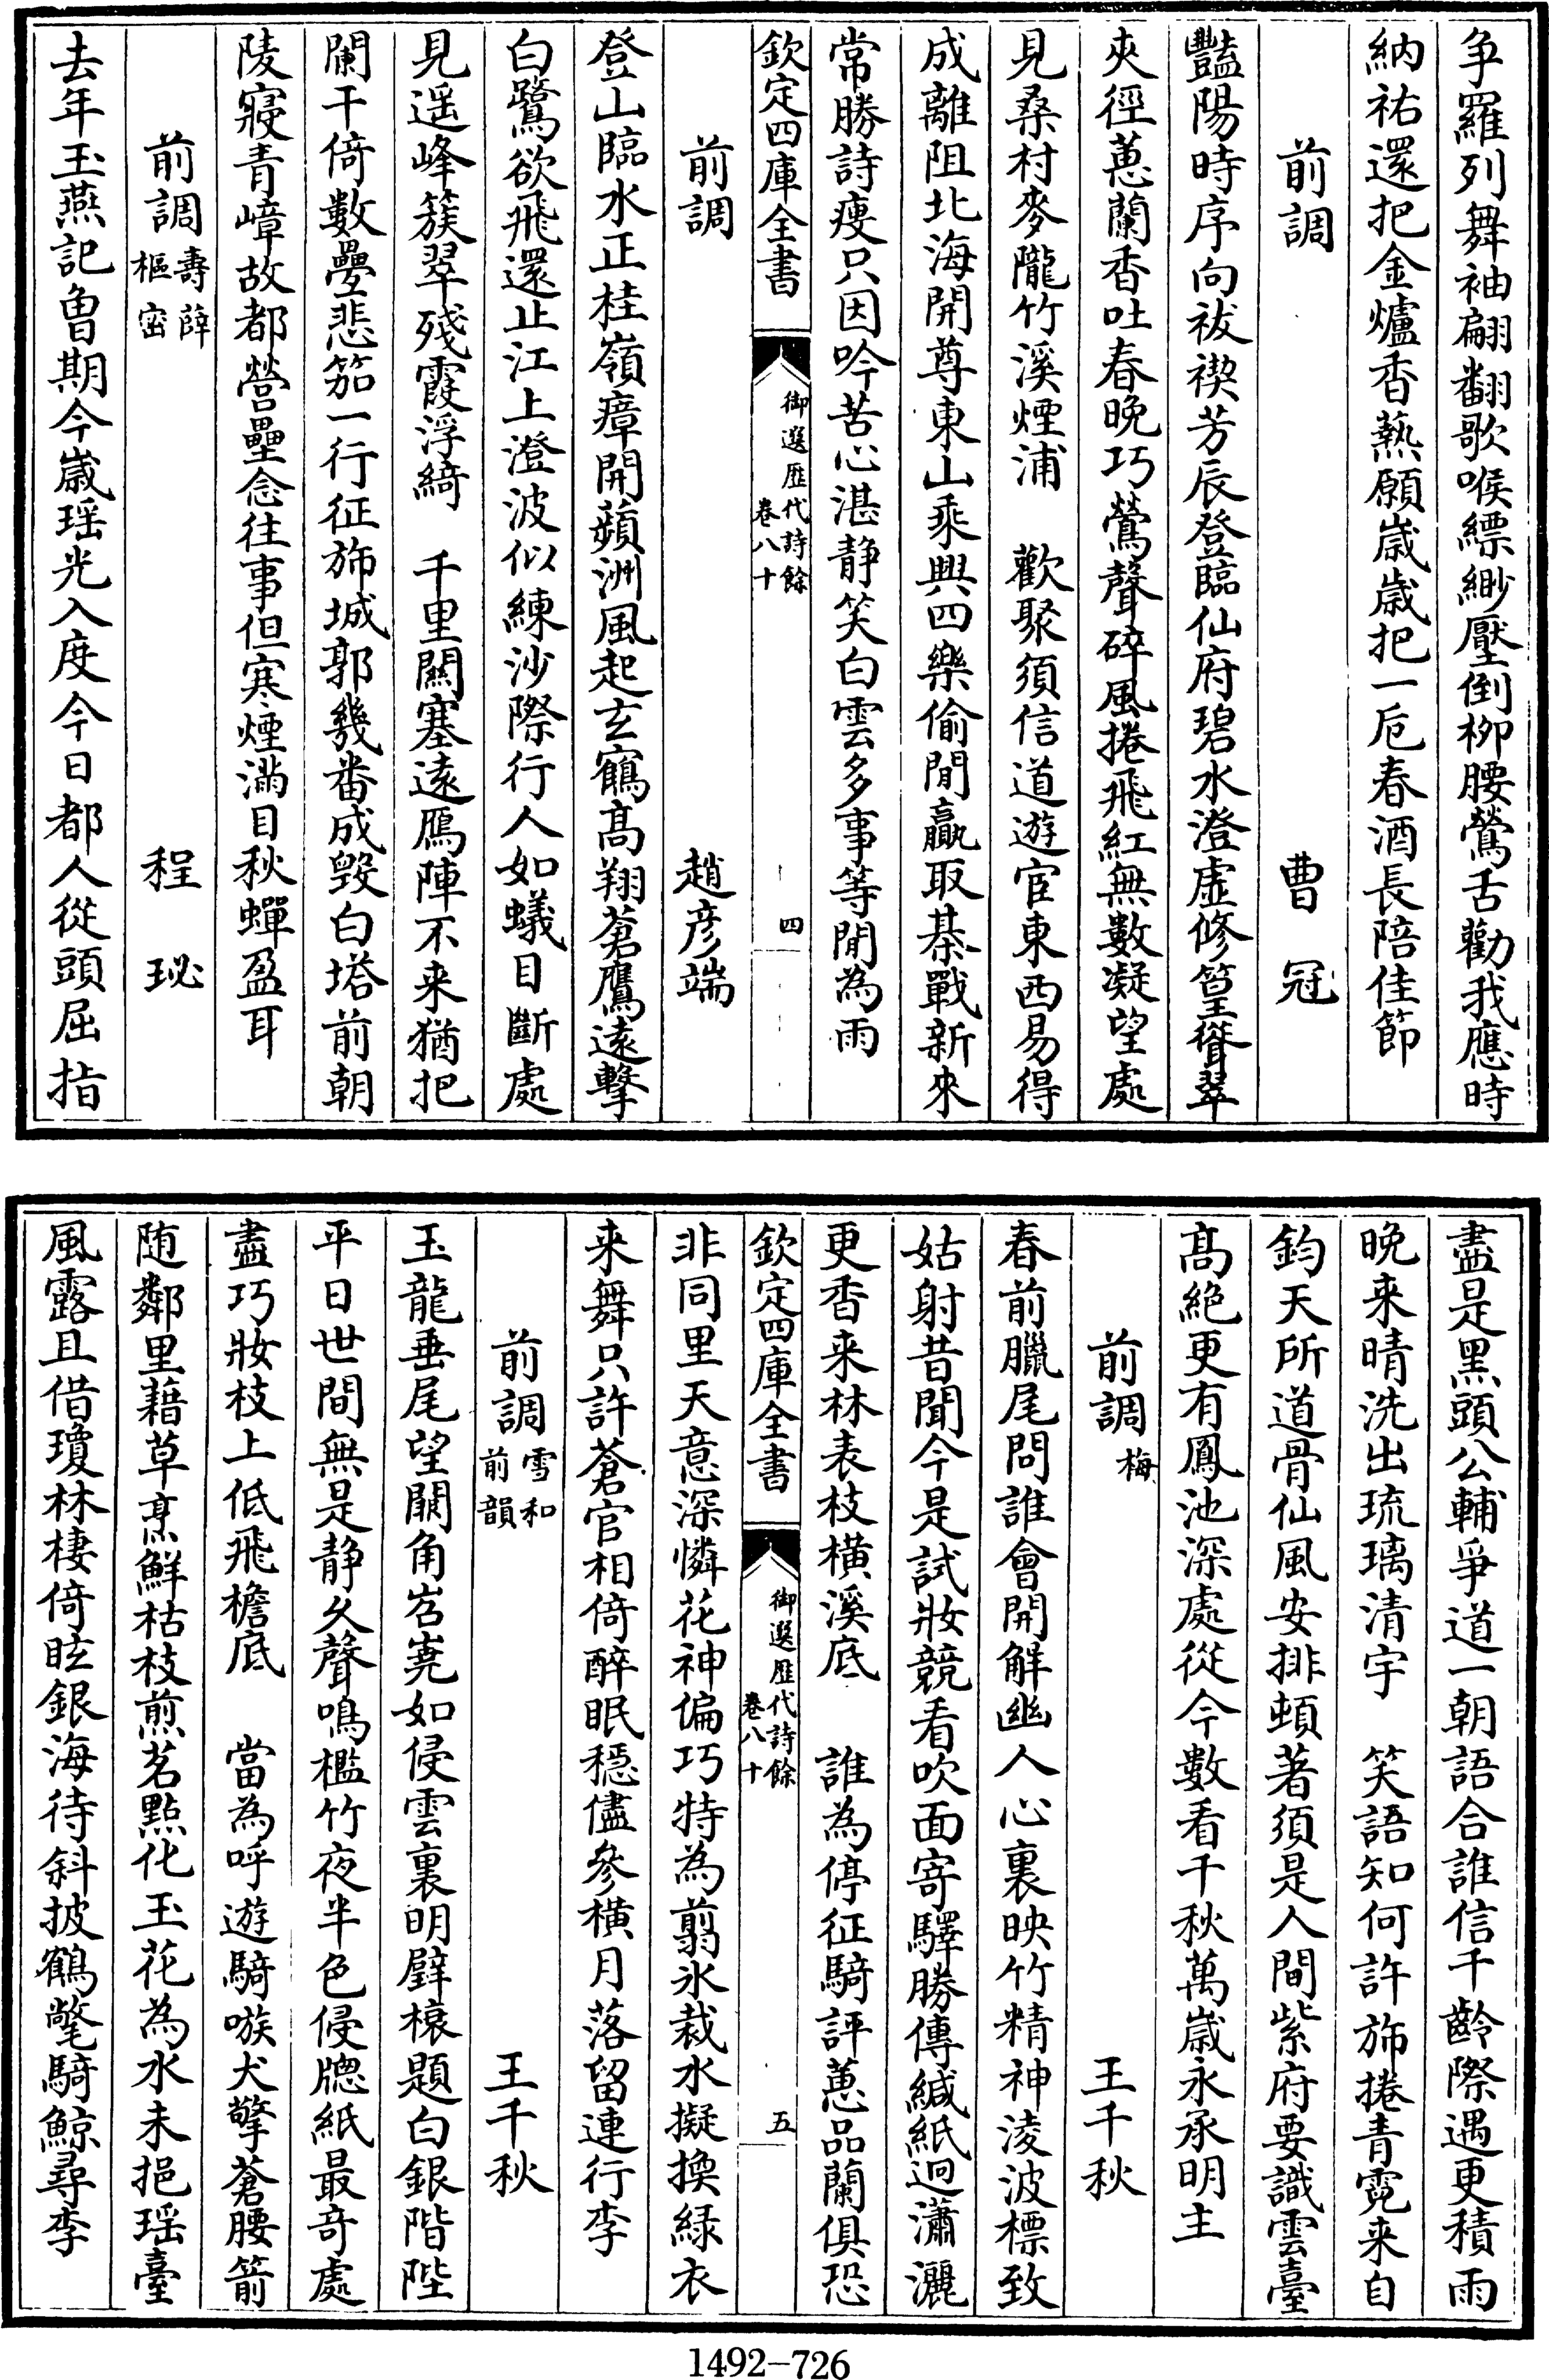 争羅列舞袖翩翻歌喉縹緲壓倒柳腰鶯舌勸我應時
納祜還把金爐香爇願歲歲把一卮春酒長陪佳節
前調　曹冠
豔陽時序向祓禊芳辰登臨仙府碧水澄虛修篁聳翠
夾徑蕙蘭香吐春晚巧鶯聲碎風捲飛紅無數凝望處
見桑村麥隴竹溪煙浦　歡聚須信道遊宦東西易得
成離阻北海開尊東山乘興四樂偷閒贏取棊戰新來
常勝詩瘦只因吟苦心湛静笑白雲多事等閒為雨
欽定四庫全書　御選歷代詩餘　卷八十　四
前調　趙彦端
登山臨水正桂嶺瘴開蘋洲風起玄鶴高翔蒼鷹遠擊
白鷺欲飛還止江上澄波似練沙際行人如蟻目斷處
見遥峰簇翠殘霞浮綺　千里關塞遠鴈陣不来猶把
闌干倚數疊悲笳一行征斾城郭幾番成毁白塔前朝
陵寢青嶂故都營壘念往事但寒煙滿目秋蟬盈耳
前調壽薛樞密　程珌
去年玉燕記曽期今歲瑶光入度今日都人從頭屈指
盡是黒頭公輔爭道一朝語合誰信千齡際遇更積雨
晚来晴洗出琉璃清宇　笑語知何許斾捲青霓来自
鈞天所道骨仙風安排頓著須是人間紫府要識雲臺
髙絶更有鳳池深處從今數看千秋萬歲永承明主
前調梅　王千秋
春前臘尾問誰會開解幽人心裏映竹精神淩波標致
姑射昔聞今是試妝競看吹面寄驛勝傳緘紙迥瀟灑
更香来林表枝横溪底　誰為停征騎評蕙品蘭俱恐
欽定四庫全書　御選歷代詩餘　卷八十　五
非同里天意深憐花神偏巧特為翦氷裁水擬換緑衣
来舞只許蒼官相倚醉眠穏儘參横月落留連行李
前調雪和前韻　王千秋
玉龍垂尾望闕角岧嶤如侵雲裏明壁榱題白銀階陛
平日世間無是静久聲鳴檻竹夜半色侵牎紙最奇處
盡巧妝枝上低飛檐底　當為呼遊騎嗾犬擎蒼腰箭
随鄰里藉草烹鮮枯枝煎茗點化玉花為水未挹瑶臺
風露且借瓊林棲倚眩銀海待斜披鶴氅騎鯨尋李
1492-726